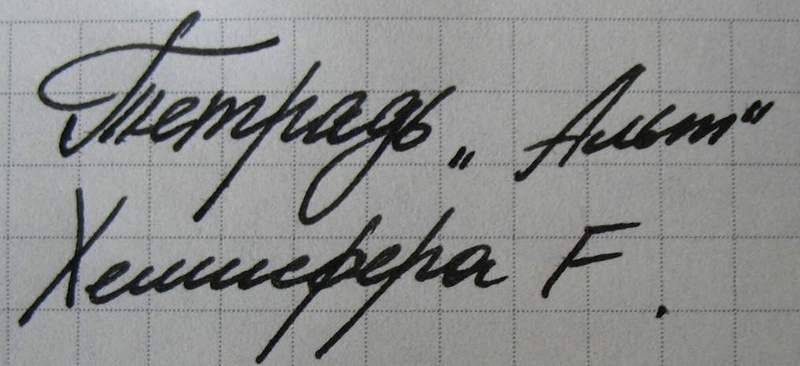 Тетрадь „Альт“
Хемисфера F.